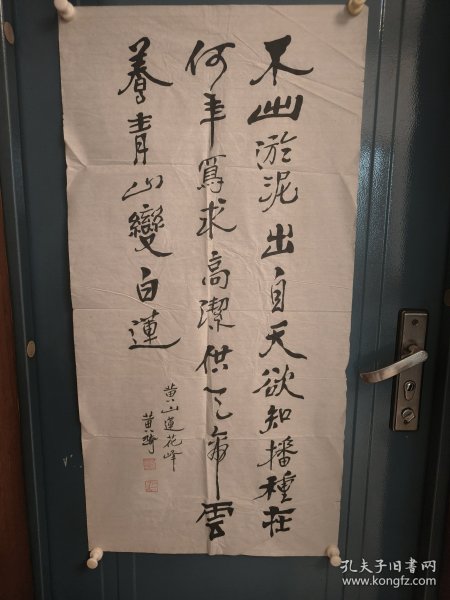 不出淤泥出自天欲知播種在
何年為求高潔供雲
養青山變白蓮
黄山蓮花峰
黄綺
孔夫子旧書网
www.kongfz.com